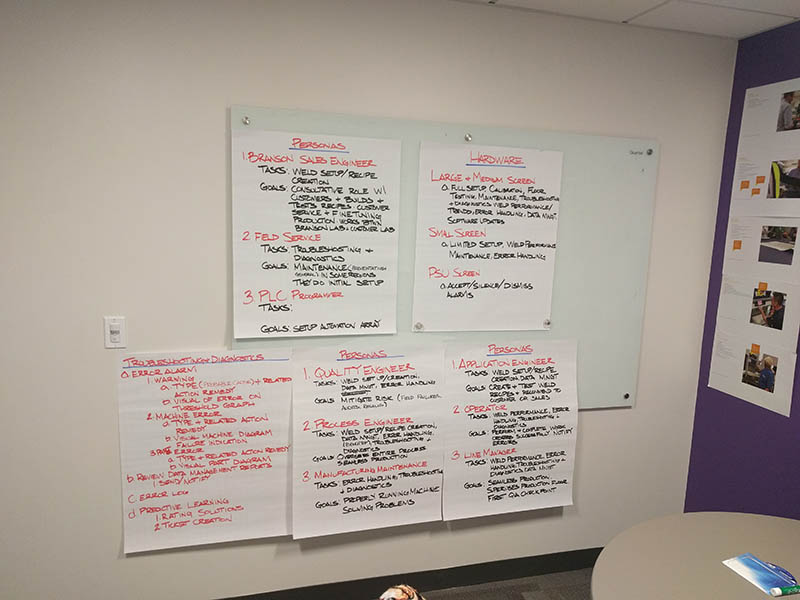 PERSONAS
1. BRANSON SALES ENGINEER
TASKS: WELD SETUP/RECIPE
CREATION
GOALS: CONSULTATIVE ROLE W/
CUSTOMERS + BUILDS +
TESTS RECIPES. CUSTOMER
SERVICE + FINETUNING
PRODUCTION. WORKS W/IN
BRANSON LAB + CUSTOMER LAB
2. FIELD SERVICE
TASKS: TROUBLESHOOTING +
DIAGNOSTICS
GOALS: MAINTENANCE (PREVENTATIVE
GENERAL) IN SOME REGIONS
THEY DO INITIAL SETUP
3. PLC PROGRAMMER
TASKS:
GOALS: SETUP AUTOMATION ARRAY
HARDWARE
LARGE + MEDIUM SCREEN
a. FULL SETUP, CALIBRATION, FLOOR
TESTING, MAINTENANCE, TROUBLESHOOTING
+ DIAGNOSTICS WELD PERFORMANCE/
TRENDS, ERROR HANDLING, DATA MNGT.
SOFTWARE UPDATES
SMALL SCREEN
a. LIMITED SETUP, WELD PERFORMANCE
MAINTENANCE, ERROR HANDLING
PSU SCREEN
a. ACCEPT/SILENCE/DISMISS
ALARMS
TROUBLESHOOTING + DIAGNOSTICS
a. ERROR ALARM
1. WARNING
a. TYPE (PROBABLE CAUSE) + RELATED
ACTION REMEDY
b. VISUAL OF ERROR ON
THRESHOLD GRAPH
2. MACHINE ERROR
a. TYPE + RELATED ACTION
REMEDY
b. VISUAL MACHINE DIAGRAM
FAILURE INDICATION
3. ERROR
a. TYPE + RELATED ACTION REMEDY
b. VISUAL PART DIAGRAM
b. REVIEW DATA MANAGEMENT REPORTS
1. SEND/NOTIFY
c. ERROR LOG
d. PREDICTIVE LEARNING
1. RATING SOLUTIONS
2. TICKET CREATION
PERSONAS
1. QUALITY ENGINEER
TASKS: WELD SET UP/CREATION,
DATA MNGT, ERROR HANDLING
GOALS: MITIGATE RISK (FIELD FAILURES,
2. PROCESS ENGINEER
TASKS: WELD SETUP/RECIPE CREATION,
DATA MNGT, ERROR HANDLING,
TROUBLESHOOTING +
DIAGNOSTICS
GOALS: OVERSEES ENTIRE PROCESS
SEAMLESS PRODUCTION
3. MANUFACTURING MAINTENANCE
TASKS: ERROR HANDLING, TROUBLESHOOTING
+ DIAGNOSTICS
GOALS: PROPERLY RUNNING MACHINE
SOLVING PROBLEMS
PERSONAS
1. APPLICATION ENGINEER
TASKS: WELD SETUP/RECIPE
CREATION DATA MNGT
GOALS: CREATE + TEST WELD
RECIPES + RECOMMEND TO
CUSTOMER OR SALES
2. OPERATOR
TASKS: WELD PERFORMANCE, ERROR
HANDLING, TROUBLESHOOTING +
DIAGNOSTICS
GOALS: PERFORM + COMPLETE WORK
ORDERS SUCCESSFULLY. NOTIFY
ERRORS
3. LINE MANAGER
TASKS: WELD PERFORMANCE ERROR
HANDLING, TROUBLESHOOTING +
DIAGNOSTICS, DATA MNGT
GOALS: SEAMLESS PRODUCTION
SUPERVISES PRODUCTION FLOOR
FIRST QA CHECKPOINT